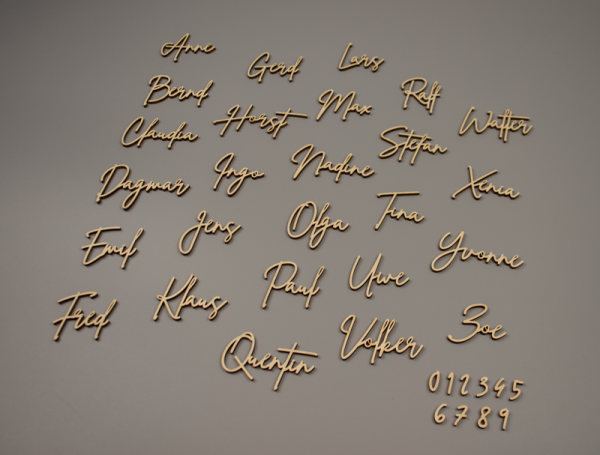 Anne
Bernd
Claudia
Dagmar
Emil
Fred
Gerd
Horst
Ingo
Jens
Klaus
Lars
Max
Nadine
Olga
Paul
Quentin
Ralf
Stefan
Tina
Uwe
Volker
Walter
Xenia
Yvonne
Zoe
0 1 2 3 4 5
6 7 8 9